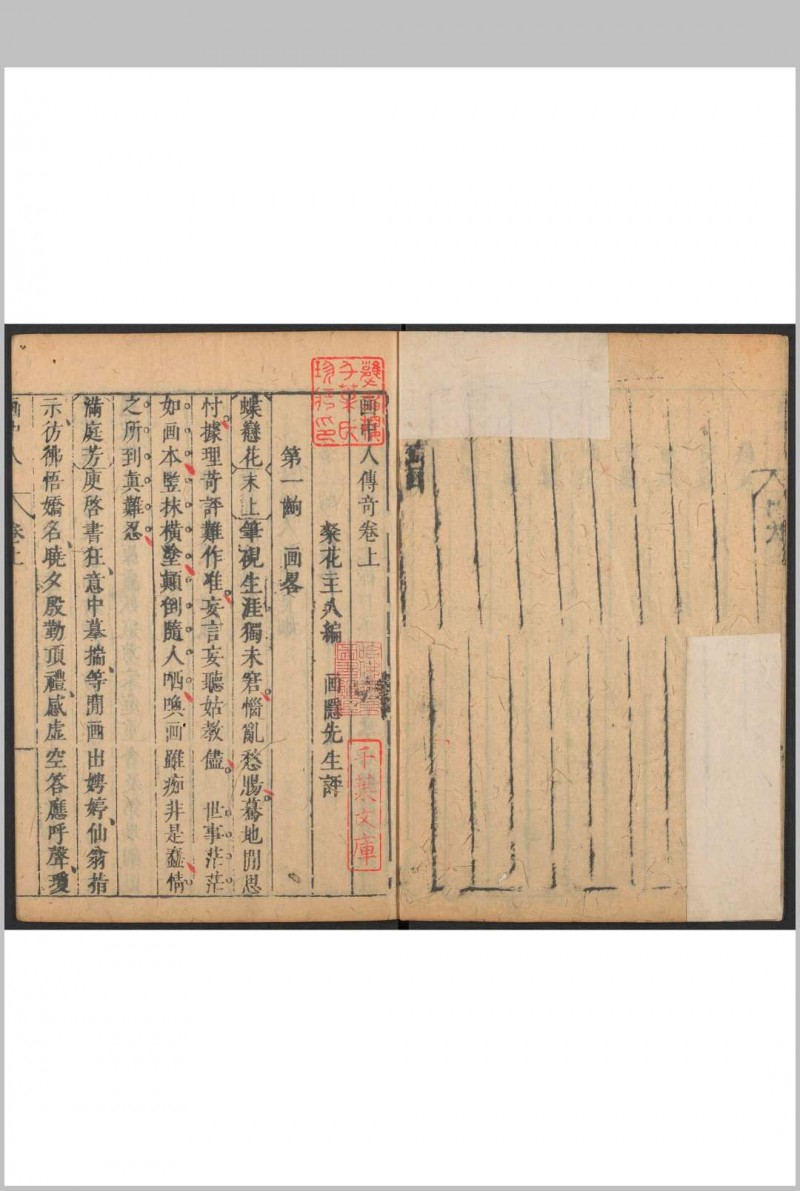 画中人傳奇卷上
粲花主人編　画隱先生評
第一齣　画畧
蝶戀花末上筆硯生涯獨未窘惱亂愁腸驀地閒思
忖據理苛評難作准妄言妄聽姑教儘　世事茫茫
如画本豎抹橫塗顛倒隨人哂喚画雖痴非是蠢情
之所到真難忍
滿庭芳庾啓書狂意中摹揣等閒画出娉婷仙翁指
示彷彿悟嬌名曉夕殷勤頂禮感虛空答應呼聲瓊
画中人　卷上
千葉文庫